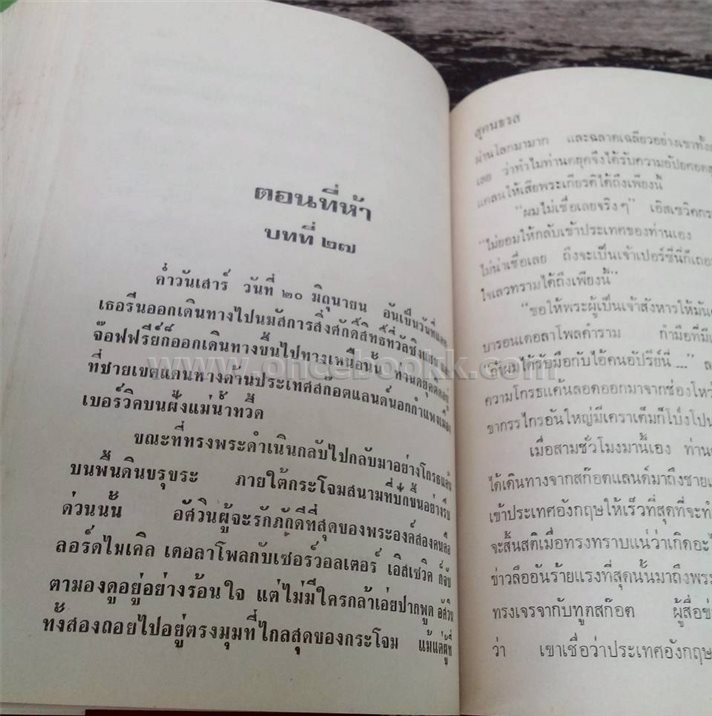 ตอนที่ห้า
บทที่ ๒๗
ค่ำวันเสาร์ วันที่ ๒๐ มิถุนายน อันเป็นวันที่
เธอรีนออกเดินทางไปนมัสการสิ่งศักดิ์สิทธิ์ที่วัลซิง
จ๊อฟฟรีย์ก็ออกเดินทางขึ้นไปทางเหนือนั้น
ที่ชายเขตแดนทางด้านประเทศสก๊อตแลนด์นอกกำแพง
เบอร์วิคบนฝั่งแม่น้ำทวี้ด
ขณะที่ทรงพระดำเนินกลับไปกลับมาอย่างโกรธแค้น
บนพื้นดินขรุขระ ภายใต้กระโจมสนามที่ปักขึ้นอย่างรีบ
ด่วนนั้น อัศวินผู้จะรักภักดีที่สุดของพระองค์สองคนคือ
ลอร์ดไมเคิล เดอลาโพลกับเซอร์วอลเตอร์ เอิสเซวิค ก็จับ
ตามองดูอยู่อย่างร้อนใจ แต่ไม่มีใครกล้าเอ่ยปากพูด อัศวิน
ทั้งสองถอยไปอยู่ตรงมุมที่ไกลสุดของกระโจม แม้แต่ผู้ที่
สูคนธรส
ผ่านโลกมามาก และฉลาดเฉลียวอย่างเขาทั้ง
เลย ว่าทำไมท่านดยุคจึงได้รับความอัปยศอด
แคลนให้เสียพระเกียรติได้ถึงเพียงนี้
"ผมไม่เชื่อเลยจริงๆ" เอิสเซวิค
"ไม่ยอมให้กลับเข้าประเทศของท่านเอง
ไม่น่าเชื่อเลย ถึงจะเป็นเจ้าเปอร์ซี่นี่ก็เถอะ
ใจเลวทรามได้ถึงเพียงนี้"
"ขอให้พระผู้เป็นเจ้าสังหารให้มัน
บารอนเดอลาโพลคำราม กำมือที่มี
ให้ผมได้รับมือกับไอ้คนอัปรีย์นี่ ..."
ความโกรธแค้นลอดออกมาจากช่องไหว่
ขากรรไกรอันใหญ่มีเคราเต็มก็โบ่งไป
เมื่อสามชั่วโมงมานี้เอง ท่าน
ได้เดินทางจากสก๊อตแลนด์มาถึงชาย
เข้าประเทศอังกฤษให้เร็วที่สุดที่จะทำ
จะสิ้นสติเมื่อทรงทราบแน่ว่าเกิดอะ
ข่าวลืออันร้ายแรงที่สุดนั้นมาถึงพระ
ทรงเจรจากับทูตสก๊อต ผู้สื่อข่
ว่า เขาเชื่อว่าประเทศอังกฤษ
www.oncebookk.com